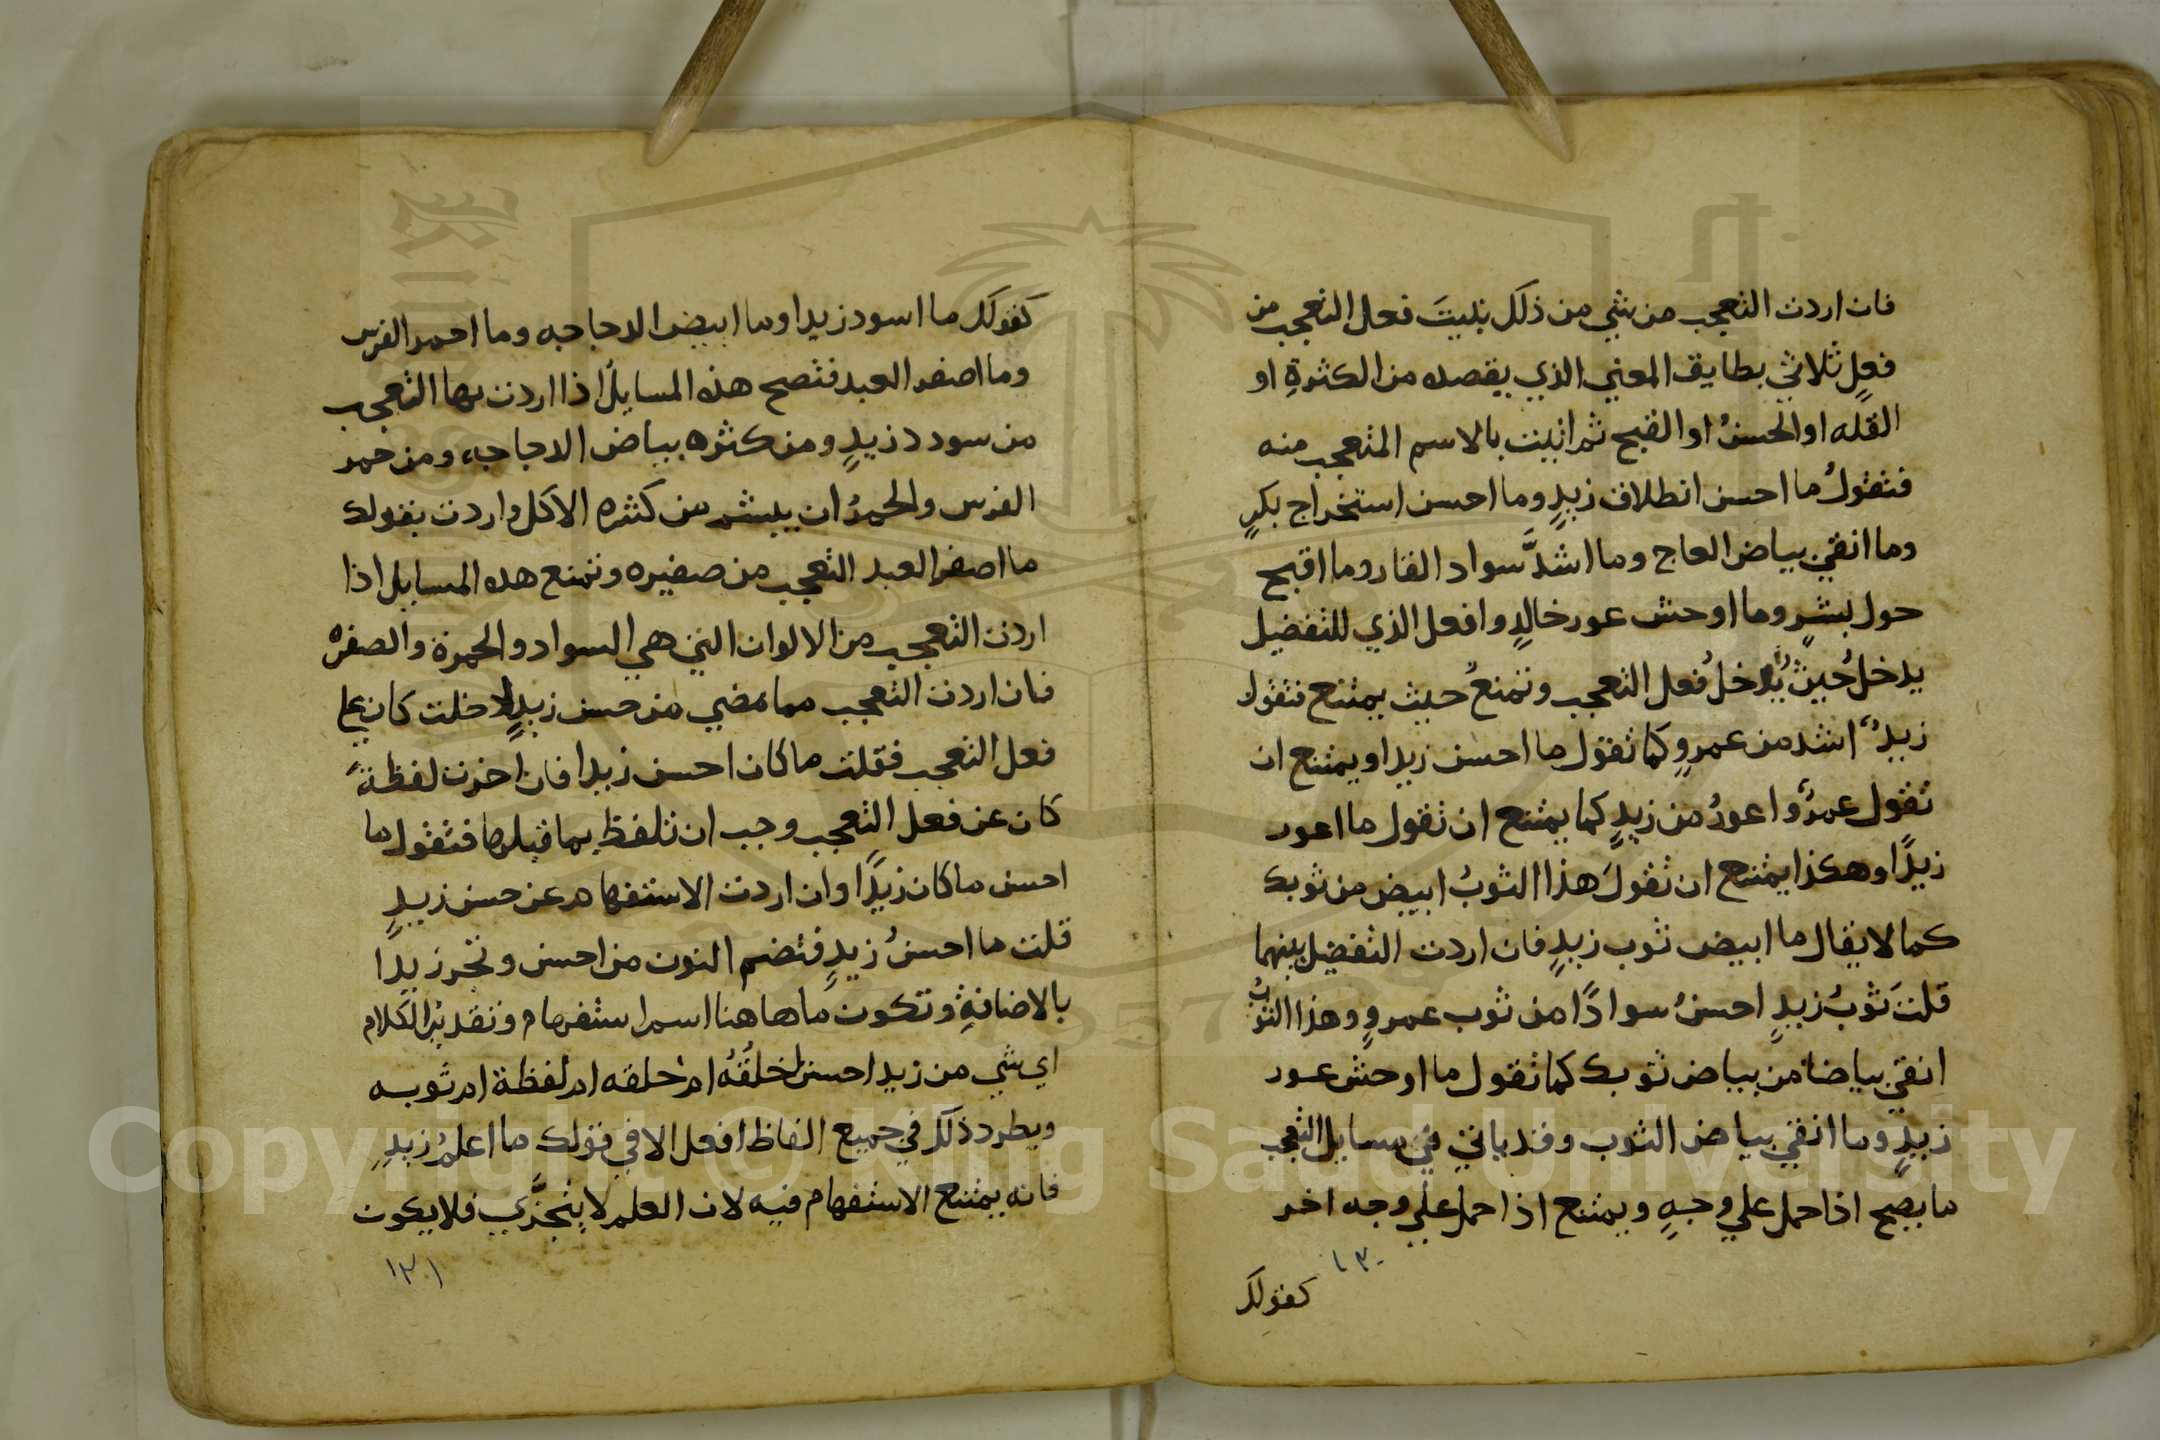 فان اردت التعجب من شي من ذلك بنيتَ فعل التعجب من
فعلٍ ثلاثي يطابق المعني الذي يقصده من الكثرةِ او
القله او الحسنُ او القبح ثم اتيت بالاسم المتعجب منه
فتقولُ ما احسن انطلاق زيدٍ وما احسن استخراج بكرٍ
وما انقي بياض العاج وما اشدَّ سواد القار وما اقبح
حول بشرٍ وما اوحش عور خالدٍ وافعل الذي للتفضيل
يدخلُ حيثُ يُدخلُ فعل التعجب وتمنعُ حيث يمتنع فتقول
زيدٌ اشد من عمروٍ كما تقول ما احسن زيدا ويمتنع ان
تقول عمرٌو اعورُ من زيدٍ كما يمتنع ان تقول ما اعور
زيدًا وهكذا يمتنع ان تقولَ هذا الثوبُ ابيض من ثوبك
كما لا يقال ما ابيض ثوب زيدٍ فان اردت التفضيل بينهما
قلتَ ثوبُ زيدٍ احسنُ سوادًا من ثوب عمروٍ وهذا الثوبُ
انقي بياضا من بياض ثوبك كما تقول ما اوحش عور
زيدٍ وما انقي بياض الثوب وقد ياتي في مسايل التعجب
ما يصح اذا حمل علي وجهٍ ويمتنع اذا حمل علي وجه اخر
١٣٠
كقولك
كقولك ما اسود زيدا وما ابيض الدجاجه وما احمر الفرس
وما اصفر العبد فتصح هذه المسايلُ اذا اردت بها التعجب
من سودد زيدٍ ومن كثره بياض الدجاجه ومن حمر
الفرس والحمرُ ان يبشم من كثره الاكل واردت بقولك
ما اصفر العبد التعجب من صفيره وتمنع هذه المسايل اذا
اردت التعجب من الالوان التي هي السواد والحمرة والصفره
فان اردت التعجب مما مضي من حسن زيدٍ ادخلت كان علي
فعل التعجب فقلت ما كان احسن زيدا فان اخرت لفظةً
كان عن فعل التعجب وجب ان تلفظ بما قبلها فتقول ما
احسن ما كان زيدًا وان اردت الاستفهام عن حسن زيدٍ
قلت ما احسنُ زيدٍ فتضم النون من احسن وتجر زيدا
بالاضافةِ وتكون ما هاهنا اسم استفهام وتقدير الكلام
اي شي من زيد احسن اخلقُهُ ام خلقه ام لفظة ام ثوبه
ويطرد ذلك في جميع الفاظ افعل الا في قولك ما اعلمُ زيدٍ
فانه يمتنع الاستفهام فيه لان العلم لا يتجزَّي فلا يكون
١٣١
Copyright © King Saud University